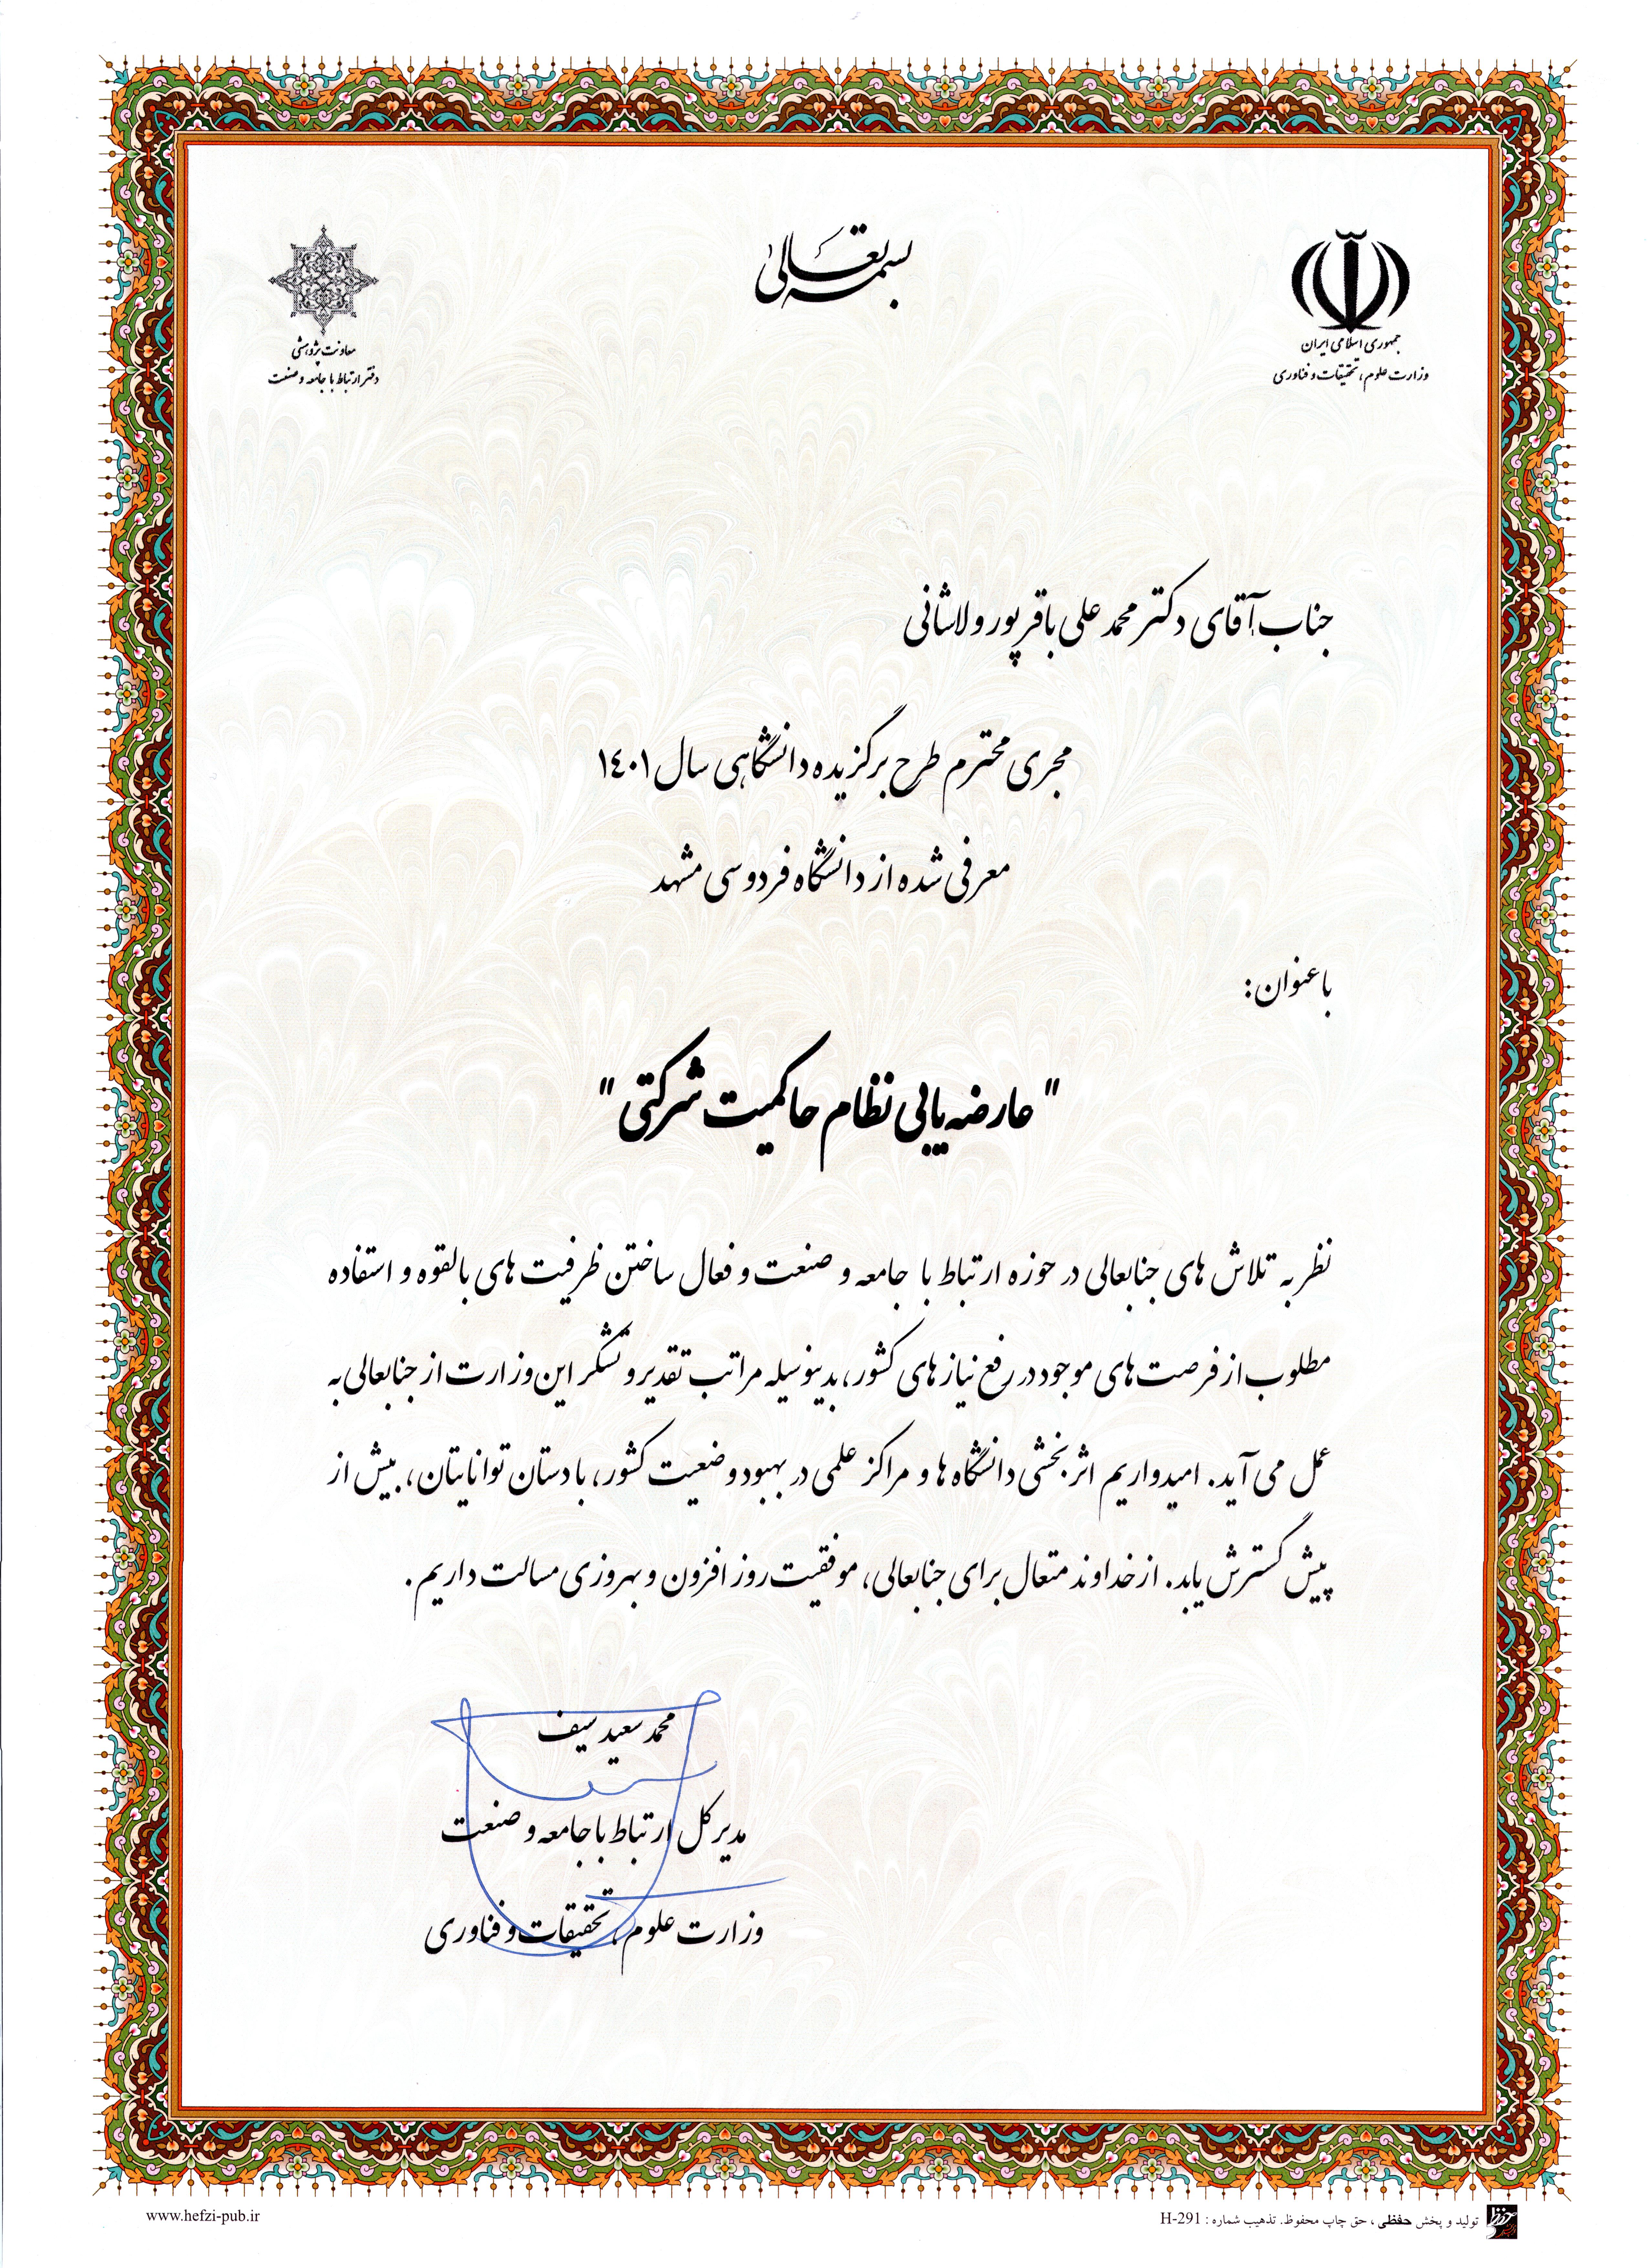 بسمه تعالی
جمهوری اسلامی ایران
وزارت علوم، تحقیقات و فناوری
معاونت پژوهشی
دفتر ارتباط با جامعه و صنعت
جناب آقای دکتر محمد علی باقرپور ولاشانی
مجری محترم طرح برگزیده دانشگاهی سال ۱۴۰۱
معرفی شده از دانشگاه فردوسی مشهد
با عنوان:
"عارضه‌یابی نظام حاکمیت شرکتی"
نظر به تلاش های جنابعالی در حوزه ارتباط با جامعه و صنعت و فعال ساختن ظرفیت های بالقوه و استفاده
مطلوب از فرصت های موجود در رفع نیازهای کشور، بدینوسیله مراتب تقدیر و تشکر این وزارت از جنابعالی به
عمل می آید. امیدواریم اثربخشی دانشگاه ها و مراکز علمی در بهبود وضعیت کشور، با دستان توانایتان، بیش از
پیش گسترش یابد. از خداوند متعال برای جنابعالی، موفقیت روز افزون و بهروزی مسالت داریم.
محمد سعید سیف
مدیرکل ارتباط با جامعه و صنعت
وزارت علوم، تحقیقات و فناوری
تولید و پخش حفظی، حق چاپ محفوظ. تذهیب شماره : H-291
www.hefzi-pub.ir